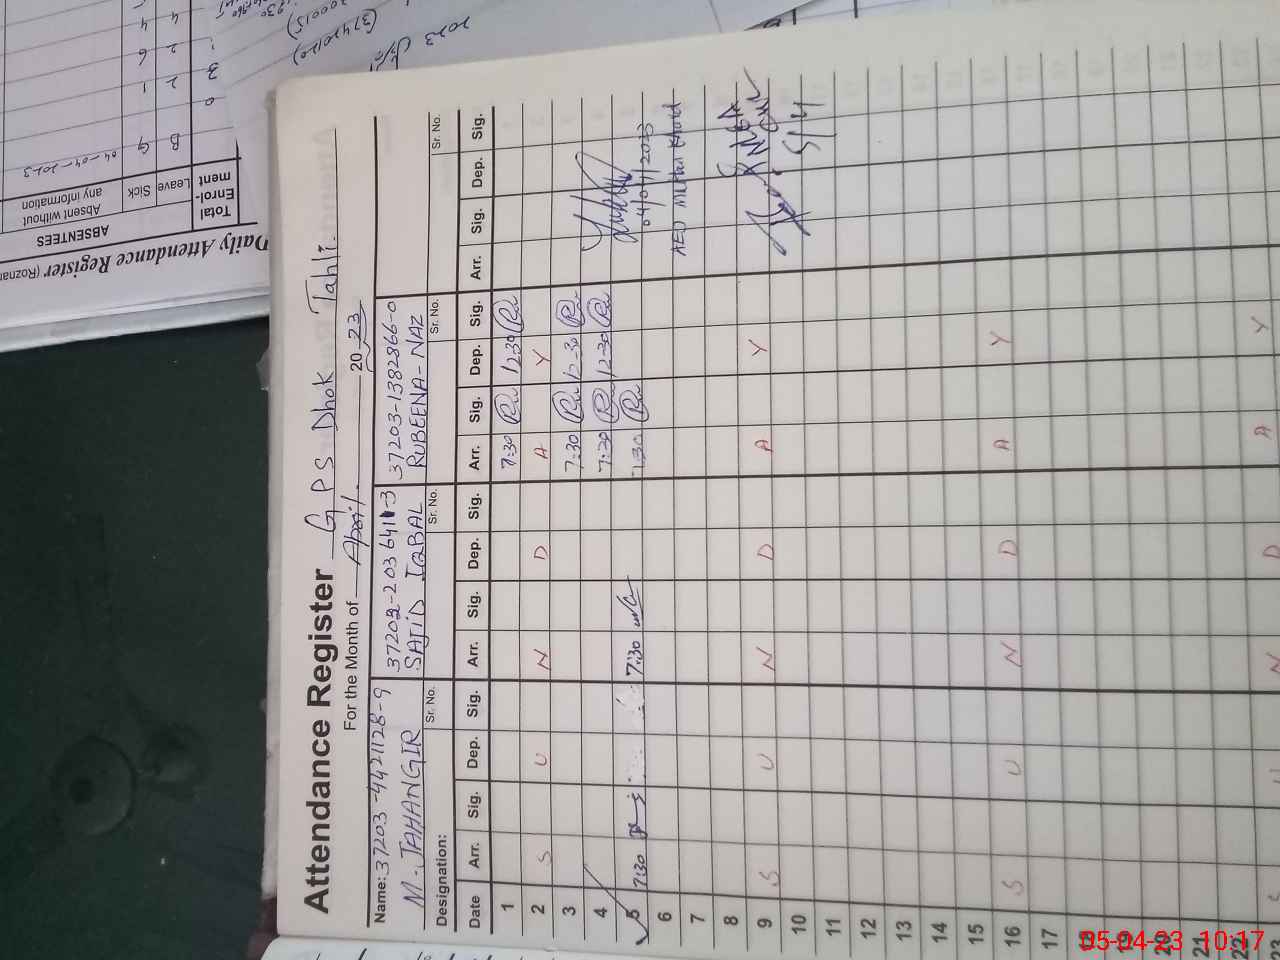 Attendance Register G P S Dhok Tahli.
For the Month of April. 20 23
Name: 37203-4421128-9 37202-2036411-3 37203-1382866-0
M. JAHANGIR SAJID IQBAL RUBEENA-NAZ
Designation: Sr. No. Sr. No. Sr. No. Sr. No.
Date Arr. Sig. Dep. Sig. Arr. Sig. Dep. Sig. Arr. Sig. Dep. Sig. Arr. Sig. Dep. Sig.
1 7:30 12:30
2 S U N D A Y
3 7:30 12-30
4 7:30 12-30
5 7:30 7:30 7:30
04/04/2023
6
AEO
7
8
9 S U N D A Y
10
5/4
11
12
13
14
15
16 S U N D A Y
17
18
19
20
21
22
23 S U N D A Y
Daily Attendance Register (Rozna
ABSENTEES
Total Enrol-ment
Leave Sick Absent without any information
B G 04-04-2023
0
3 2 1
2 6
4 4
2023
05-04-23 10:17